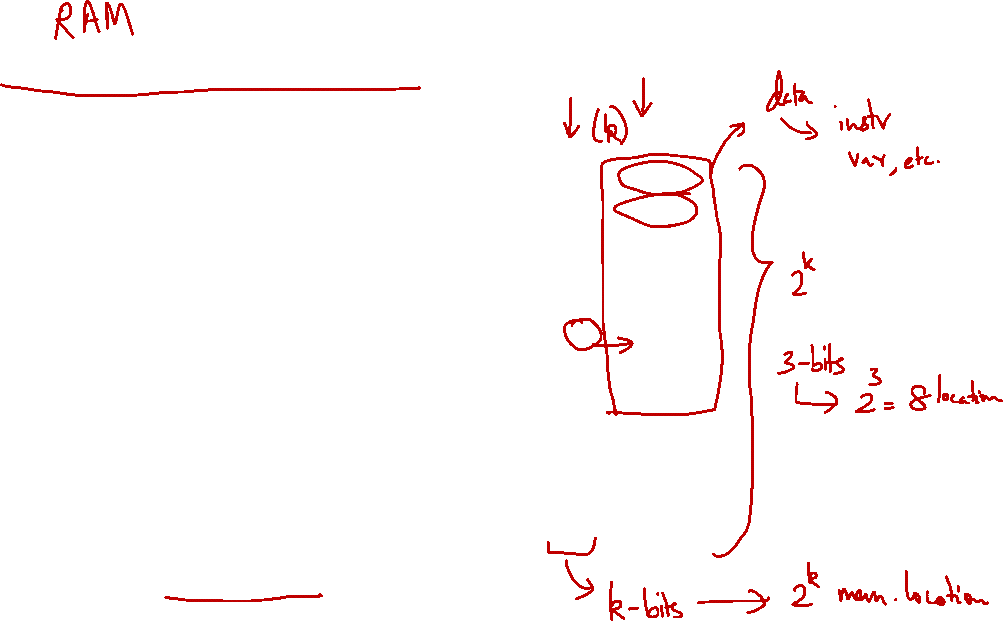 RAM
data
(k)
instr
var, etc.
2^k
3-bits
2^3 = 8 location
k-bits → 2^k mem. location